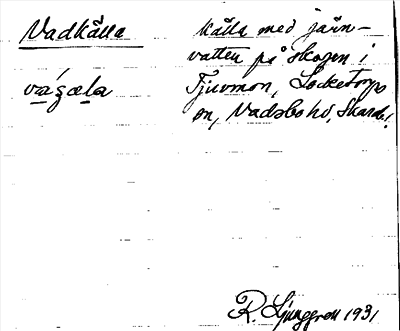 Vadkälla
vágæla
källa med järn-
vatten på skogen i
Tjuvmon, Locketorps
sn, Vadsbohd, Skarab.
R. Ljunggren 1931